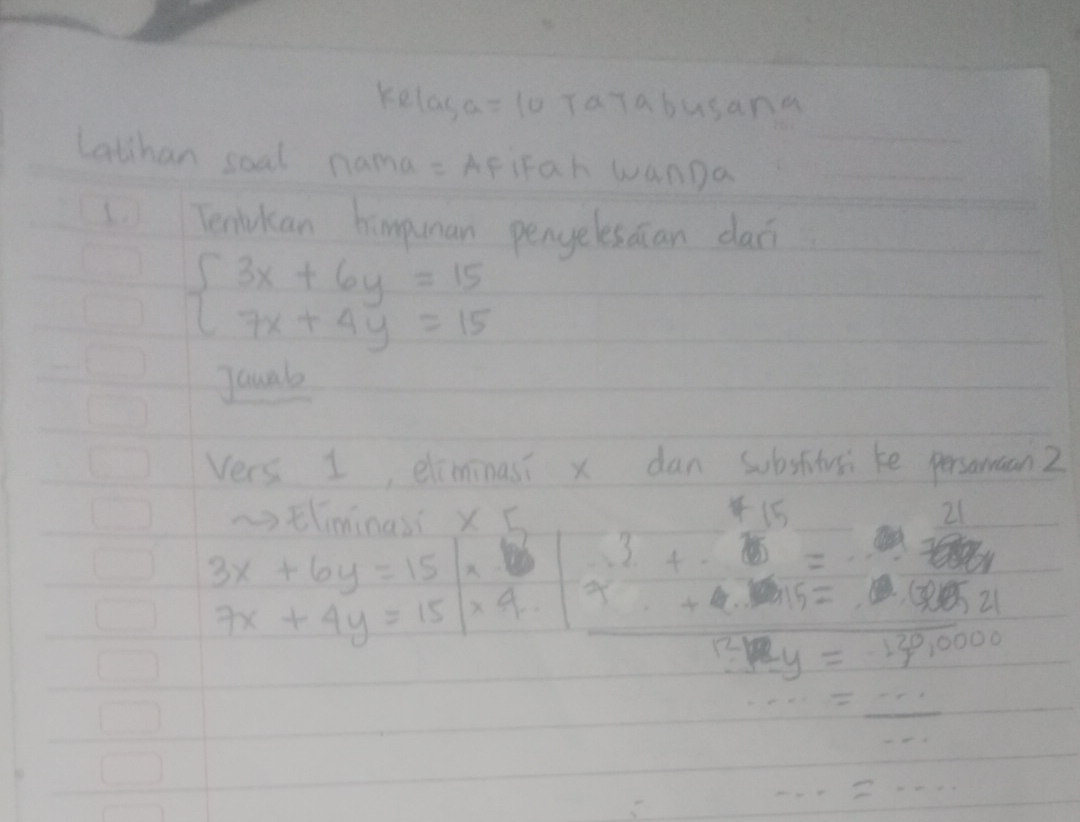 Kelasa = 10 TATabusana
Latihan soal nama = AFiFah WanDa
1. Tentukan himpunan penyelesaian dari
3x + 6y = 15
7x + 4y = 15
Jawab
Vers 1, eliminasi x dan substitusi ke persamaan 2
~> Eliminasi x 5 15 21
3x + 6y = 15 | x | ..3 + .. = ..
7x + 4y = 15 | x 4. | 15 = 21
12 y =
.... = ...
...
... = ....